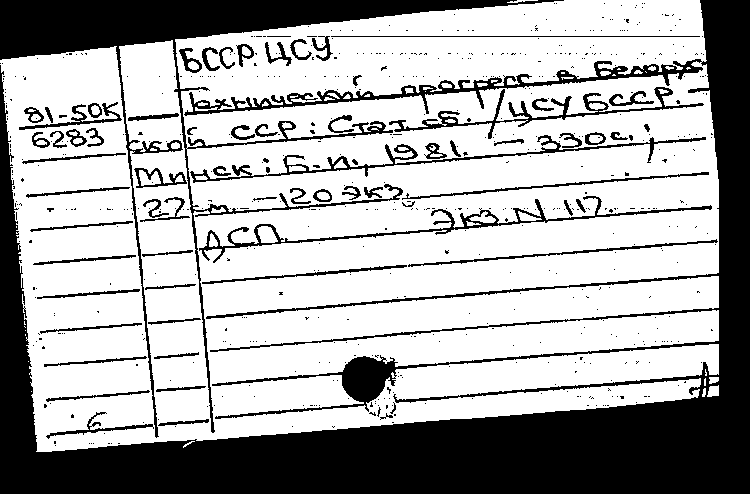 БССР. ЦСУ.
Технический прогресс в Белорус-
81-50К
6283
ской ССР: Стат. сб. / ЦСУ БССР. –
Минск: Б.и., 1981. – 330с.;
27 см. – 120 экз.
ДСП. Экз. N 117.
6